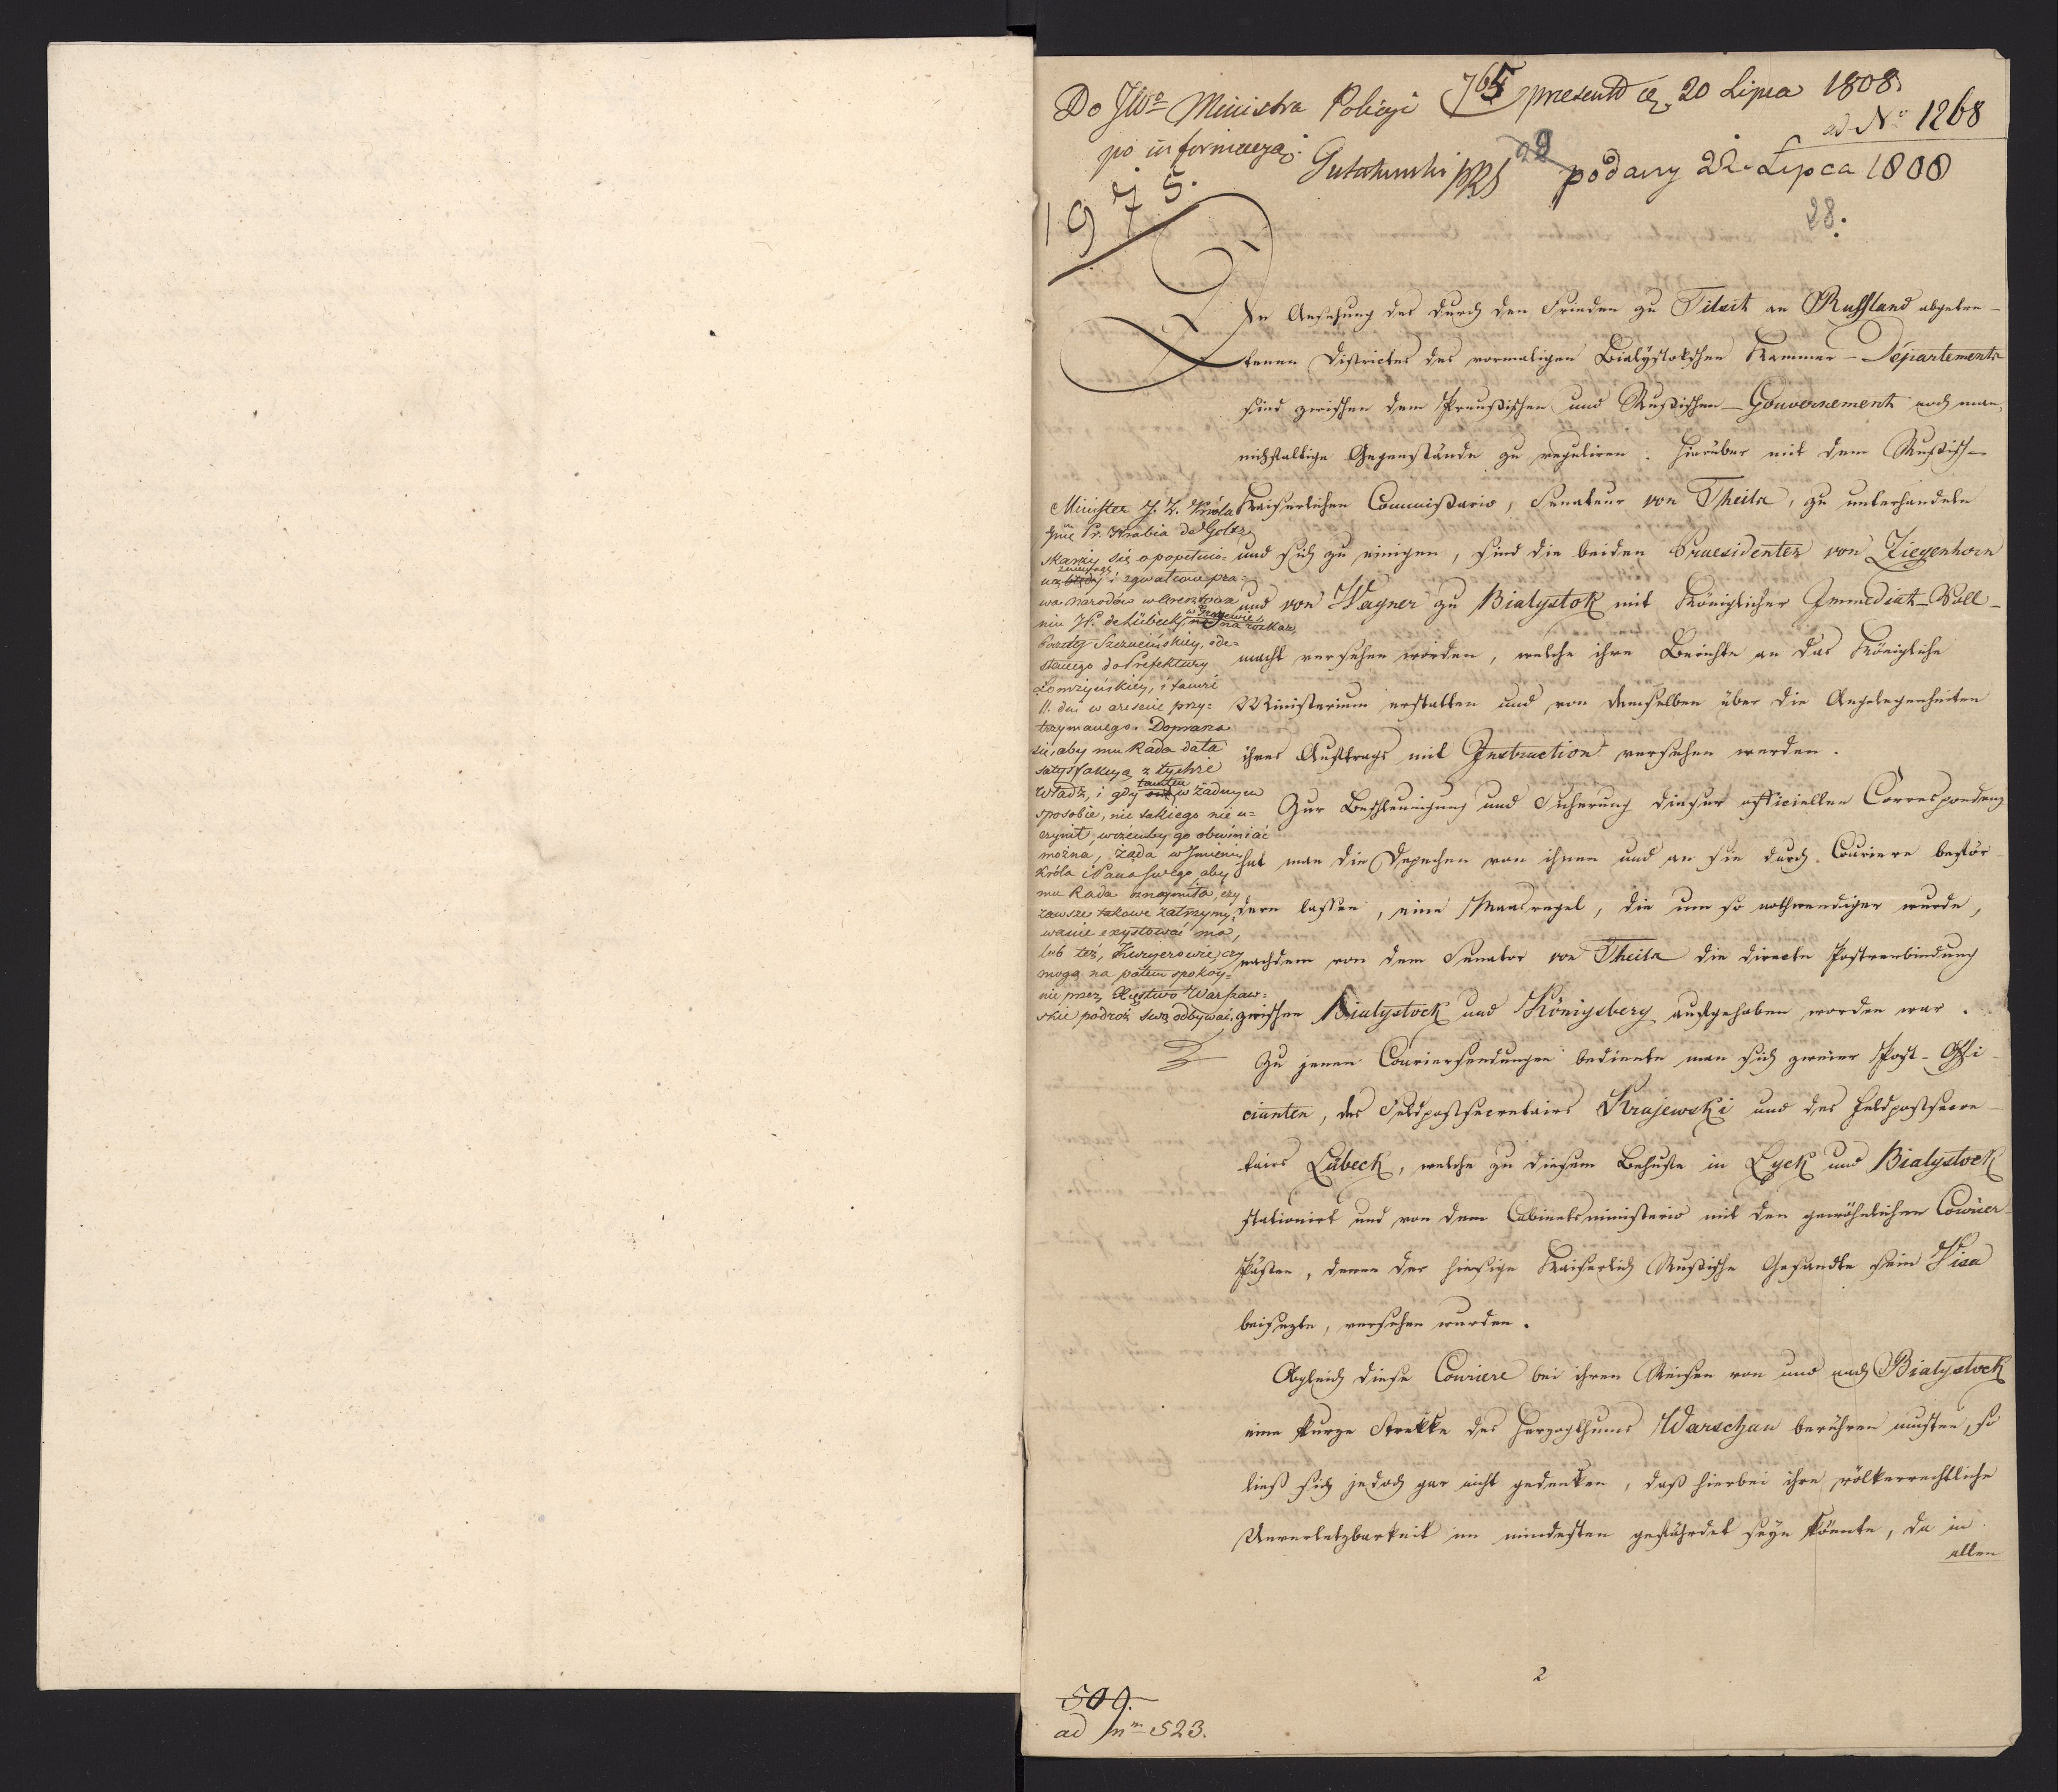 Do JWo Ministra Policyi
po informacyą.
765 presentd d. 20 Lipca 1808
ad No 1268
podany 22. Lipca 1808
28.
1975.
In Ansehung des durch den Frieden zu Tilsit an Russland abgetre-
tenen Districtes des vormaligen Bialÿstokschen Kammer-Départements
sind zwischen dem Preußischen und Rußischen Gouvernement noch man-
nichfaltige Gegenstände zu reguliren. Hierüber mit dem Rußisch-
Kaiserlichen Commißario, Senateur von Theils, zu unterhandeln
und sich zu einigen, sind die beiden Praesidenten von Ziegenhorn
und von Wagner zu Bialystok mit Königlicher Immediat-Voll-
macht versehen worden, welche ihre Berichte an das Königliche
Ministerium erstatten und von demselben über die Angelegenheiten
ihres Auftrags mit Instruction versehen werden.
Zur Beschleunigung und Sicherung dieser officiellen Correspondenz
hat man die Depechen von ihnen und an sie durch Couriere beför-
dern lassen, eine Maasregel, die um so nothwendiger wurde,
nachdem von dem Senator von Theils die directe Postverbindung
zwischen Bialystock und Königsberg aufgehoben worden war.
Zu jenen Couriersendungen bediente man sich zweier Post-Offi-
cianten, des Feldpostsecretairs Krajewski und des Feldpostsecre-
tairs Lübeck, welche zu diesem Behufe in Lyck und Bialystock
stationirt und von dem Cabinetsministerio mit den gewöhnlichen Courier-
Päßen, denen der hiesige Kaiserlich Rußische Gesandte sein Visa
beisezte, versehen wurden.
Obgleich diese Couriere bei ihren Reisen von und nach Bialystock
eine kurze Strekke des Herzogthums Warschau berühren musten, so
ließ sich jedoch gar nicht gedenken, daß hierbei ihre völkerrechtliche
Unverletzbarkeit im mindesten gefährdet seyn könnte, da in
allen
Minister J. K. Króla
Jmć Pr. Hrabia de Goltz
skarży się o popełnio-
ną zniewagę i zgwałcenie pra-
wa Narodów w aresztowa-
niu P. de Lübeck w Grajewie na rozkaz
Szczucińskiey, ode-
słanego do Prefektury
Łomżyńskiey, i tamże
11. dni w areszcie przy-
trzymanego. Doprasza
się, aby mu Rada dała
satysfakcyą z tychże
Władz, i gdy tamten w żadnym
sposobie, nic takiego nie u-
czynił, o coźemby go obwiniać
można, żąda w Jmieniu
Króla i Pana swego, aby
mu Rada oznaymiła, czy
zawsze takowe zatrzymy-
wanie exystować ma,
lub też, Kuryerowie, czy
mogą na potem spokoy-
nie przez Xięstwo Warszaw-
skie podróż swą odbywać.
2
509.
ad Nm 523.